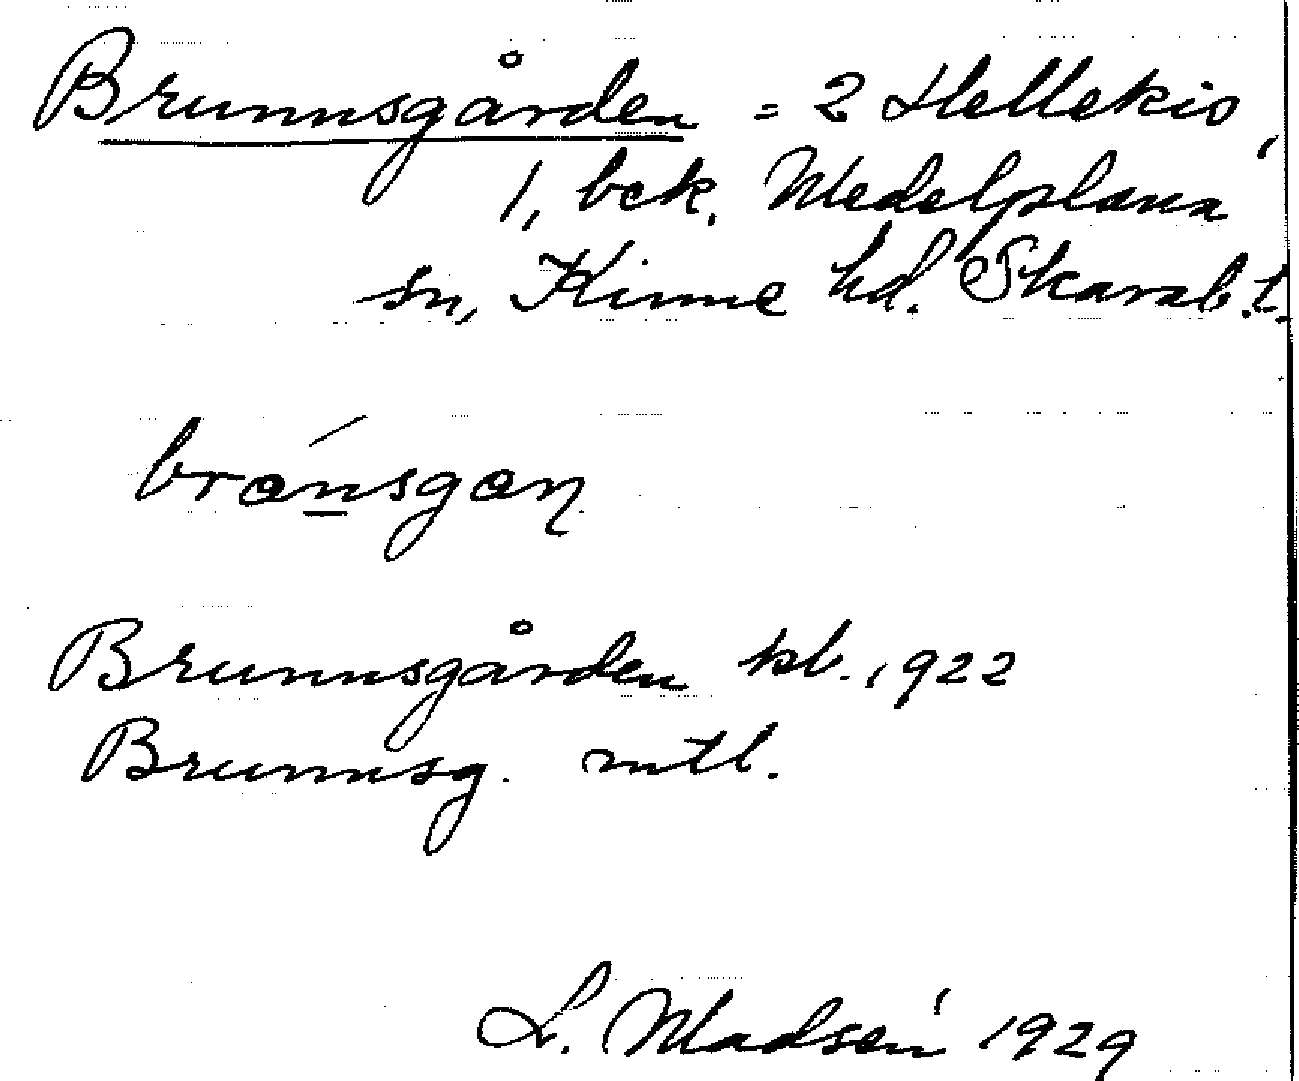 Brunnsgården = 2 Hellekis,
1, bek. Medelplana
sn, Kinne hd. Skarab.l.
Brunnsgården kb. 1922
Brunnsg. mtl.
L. Madsén 1929